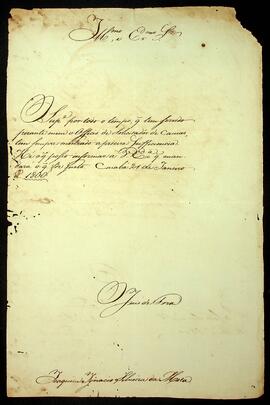 Illmo e Exmo Sr
Supe por todo o tempo, q tem servido
perante mim o Officio de Solicitador de Cauzas,
tem sempre mostrado a precisa Sufficiencia
He o q posso informar a V Exa q man
dará o q for justo. Cuiabá 21 de Janeiro
1800
Juiz de Fora
Joaquim Ignacio Silveira da Mota